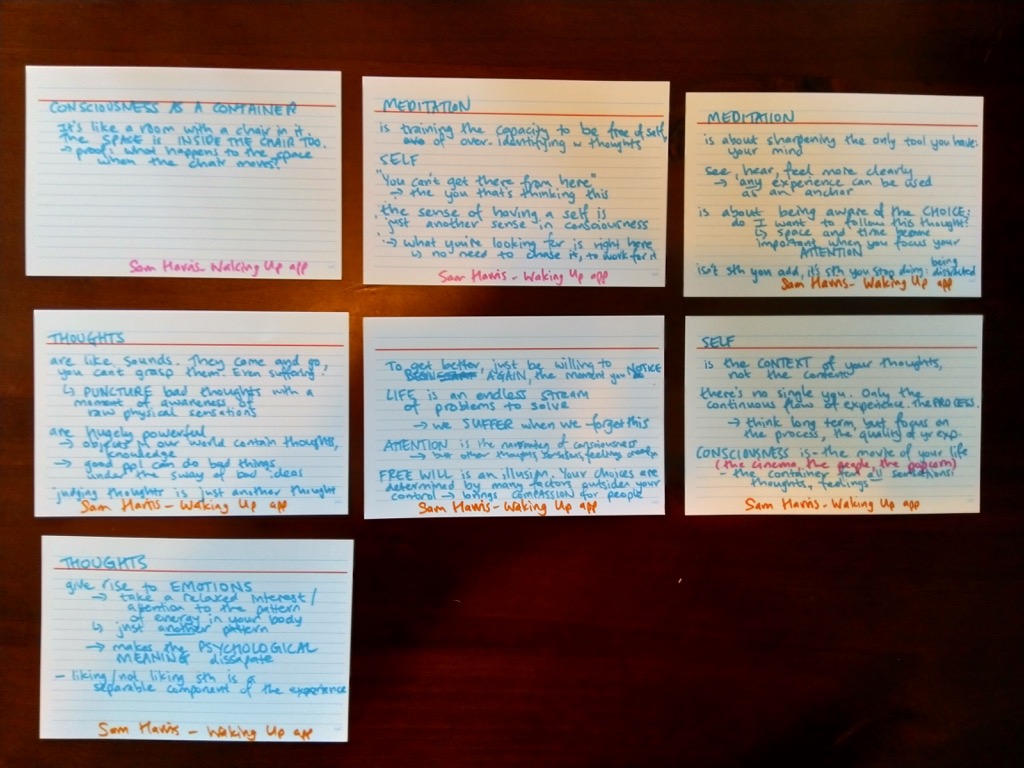 CONSCIOUSNESS AS A CONTAINER
It's like a room with a chair in it.
The SPACE is INSIDE THE CHAIR TOO.
→ proof: what happens to the space
when the chair moves?
Sam Harris - Waking Up app
MEDITATION
is training the capacity to be free of self,
of over-identifying w thoughts
SELF
"You can't get there from here"
→ the you that's thinking this
the sense of having a self is
just another sense in consciousness
→ what you're looking for is right here
↳ no need to chase it, to work for it
Sam Harris - Waking Up app
MEDITATION
is about sharpening the only tool you have:
your mind
see, hear, feel more clearly
→ any experience can be used
as an anchor
is about being aware of the CHOICE:
do I want to follow this thought?
↳ space and time become
important when you focus your
ATTENTION
isn't sth you add, it's sth you stop doing: being distracted
Sam Harris - Waking Up app
THOUGHTS
are like sounds. They come and go,
you can't grasp them. Even suffering.
↳ PUNCTURE bad thoughts with a
moment of awareness of
raw physical sensations
are hugely powerful
→ objects in our world contain thoughts,
knowledge
→ good ppl can do bad things
under the sway of bad ideas
judging thoughts is just another thought
Sam Harris - Waking Up app
To get better, just be willing to
AGAIN, the moment you NOTICE
LIFE is an endless STREAM
of problems to solve
→ we SUFFER when we forget this
ATTENTION is the narrowing of consciousness
→ but other thoughts, sensations, feelings
FREE WILL is an illusion. Your choices are
determined by many factors outside your
control → brings COMPASSION for people
Sam Harris - Waking Up app
SELF
is the CONTEXT of your thoughts,
not the content
there's no single you. Only the
continuous flow of experience, the PROCESS.
→ think long term, but focus on
the process, the quality of yr exp.
CONSCIOUSNESS is - the movie of your life
(the cinema, the people, the popcorn)
- the container for all sensations,
thoughts, feelings
Sam Harris - Waking Up app
THOUGHTS
give rise to EMOTIONS
→ take a relaxed interest/
attention to the pattern
of energy in your body
↳ just another pattern
→ makes the PSYCHOLOGICAL
MEANING dissapate
- liking/not liking sth is a
separable component of the experience
Sam Harris - Waking Up app